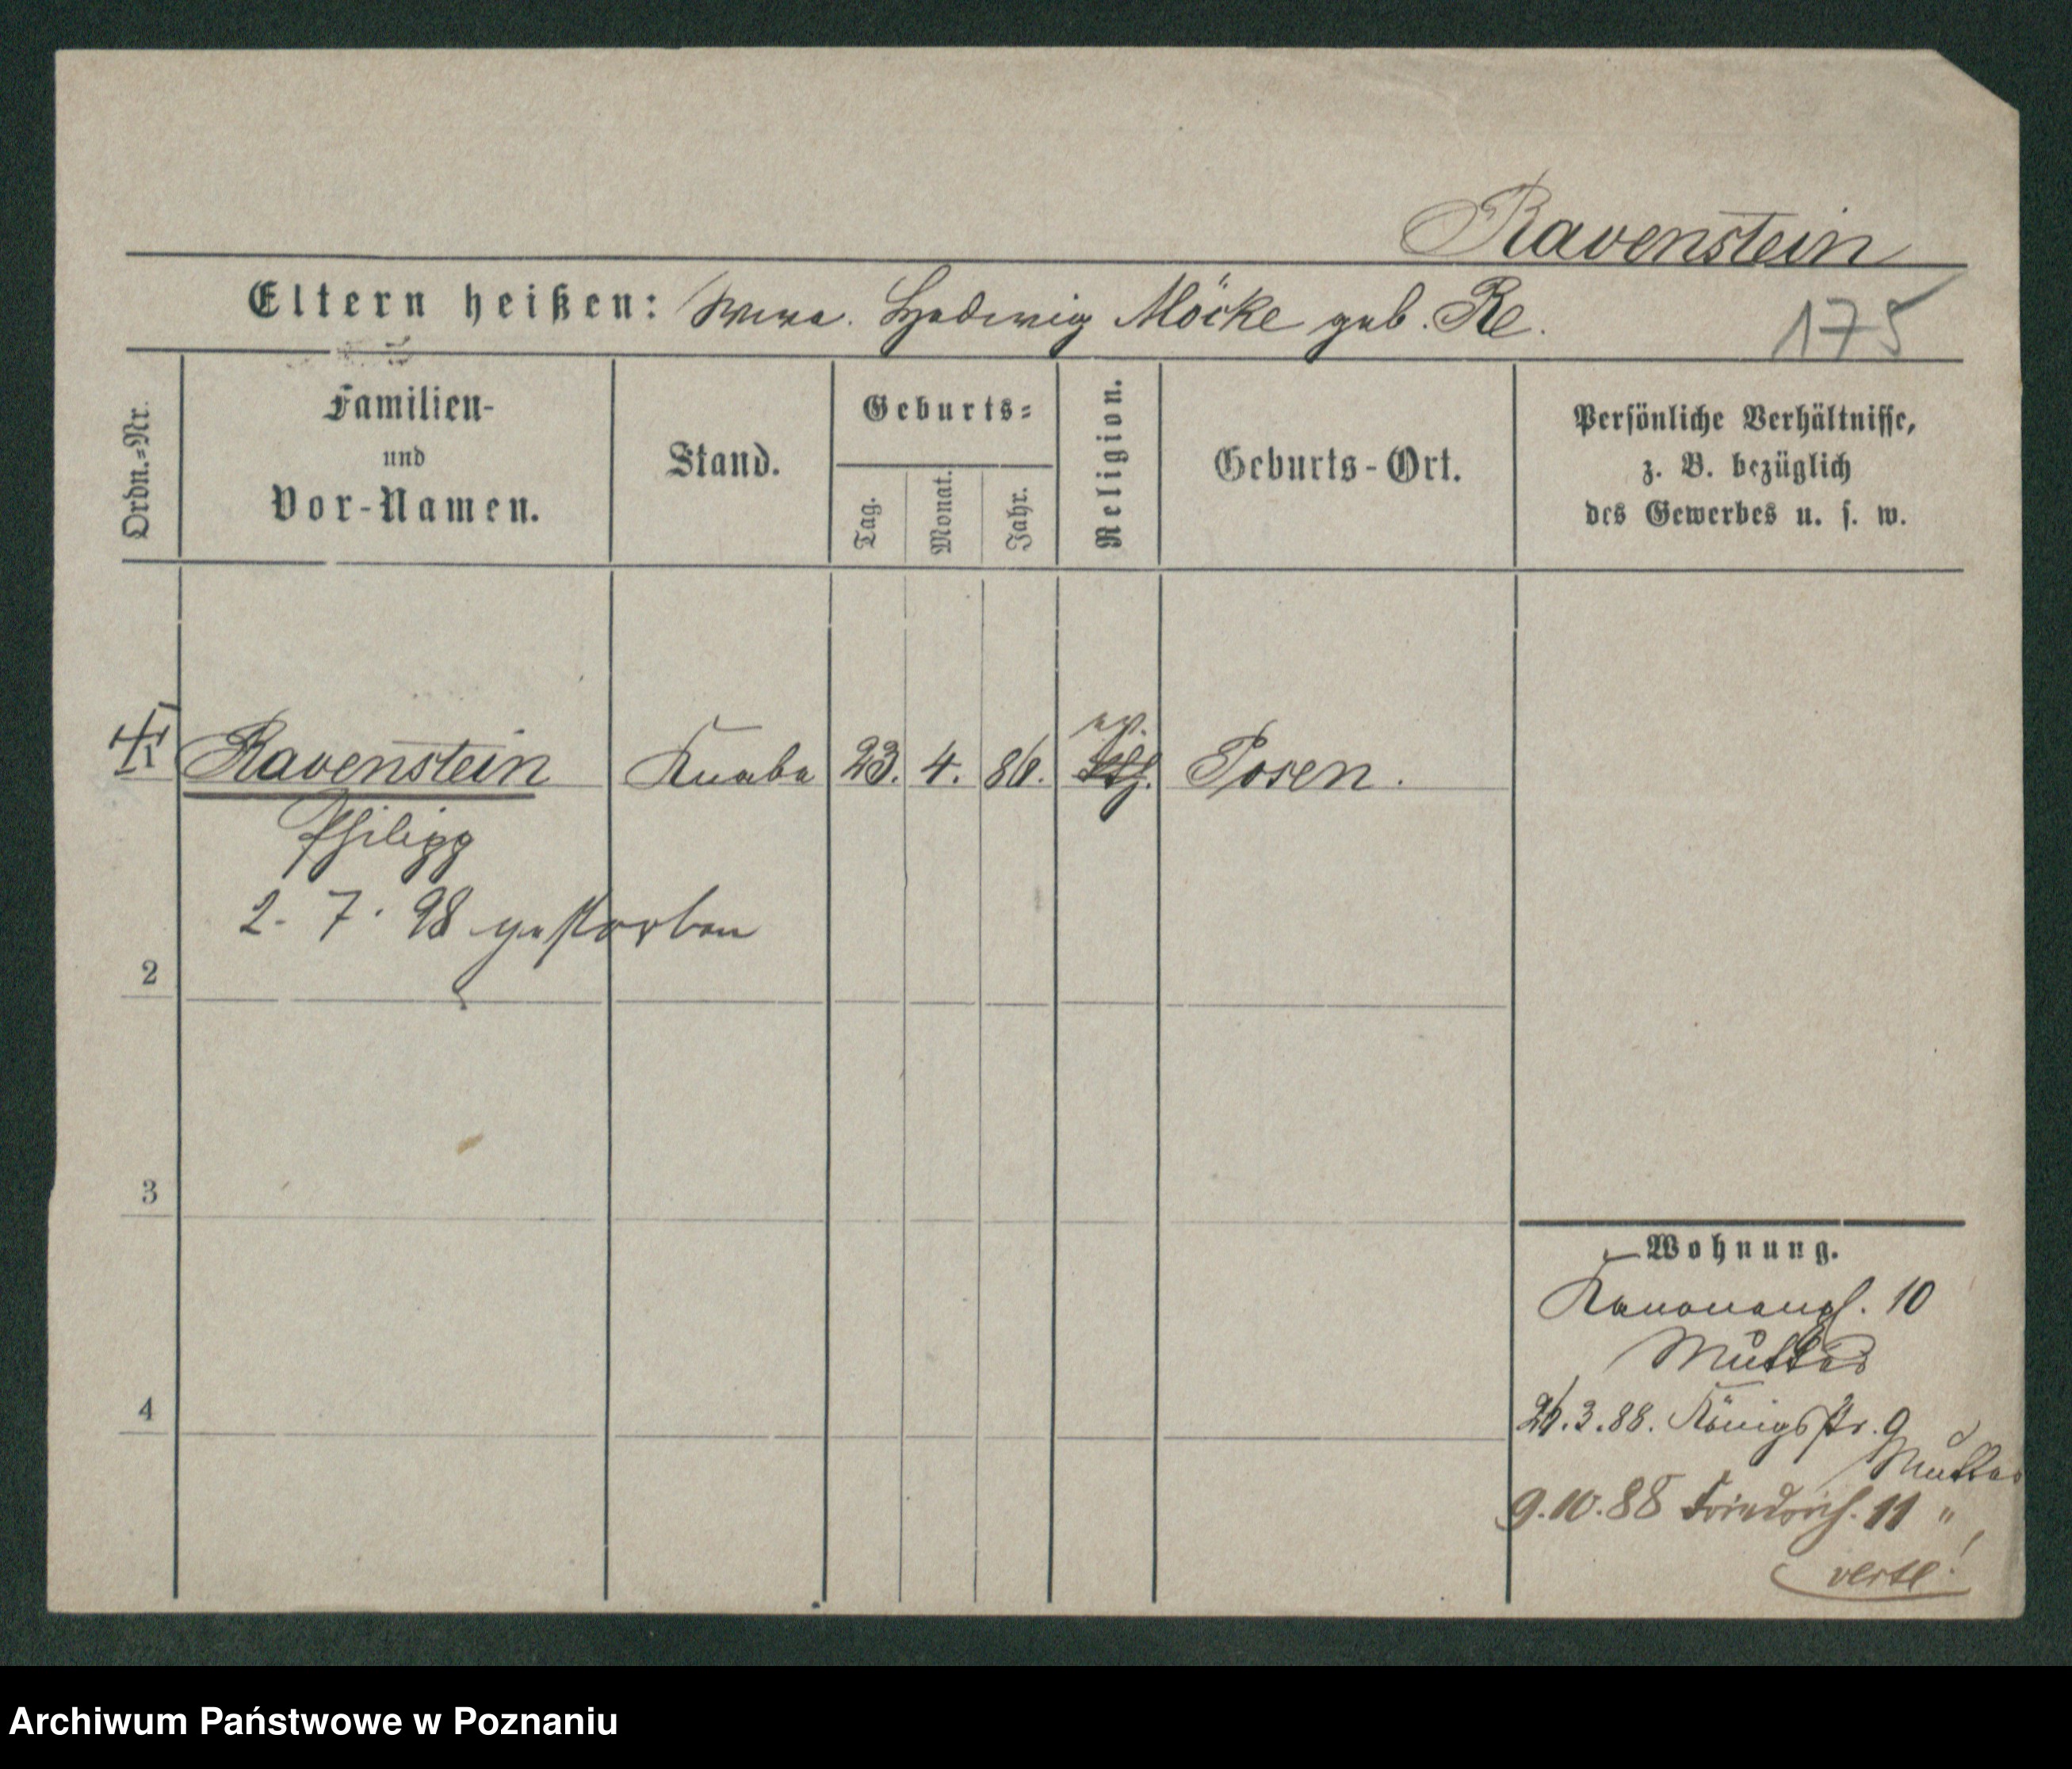 Ravenstein
Eltern heißen: Wwe. Hedwig Möcke geb. Re.
175
Ordn.=Nr.
Familien-
und
Vor-Namen.
Stand.
Geburts=
Tag.
Monat.
Jahr.
Religion.
Geburts-Ort.
Persönliche Verhältnisse,
z. B. bezüglich
des Gewerbes u. s. w.
ev.
1 Ravenstein Knabe 23. 4. 86. Posen.
Philipp
2. 7. 98 gestorben
2
3
4
Wohnung.
Kanonenpl. 10
Mutter
26.3.88. Königsstr. 9
Mutter
9.10.88 Friedrich. 11 "
verte!
Archiwum Państwowe w Poznaniu